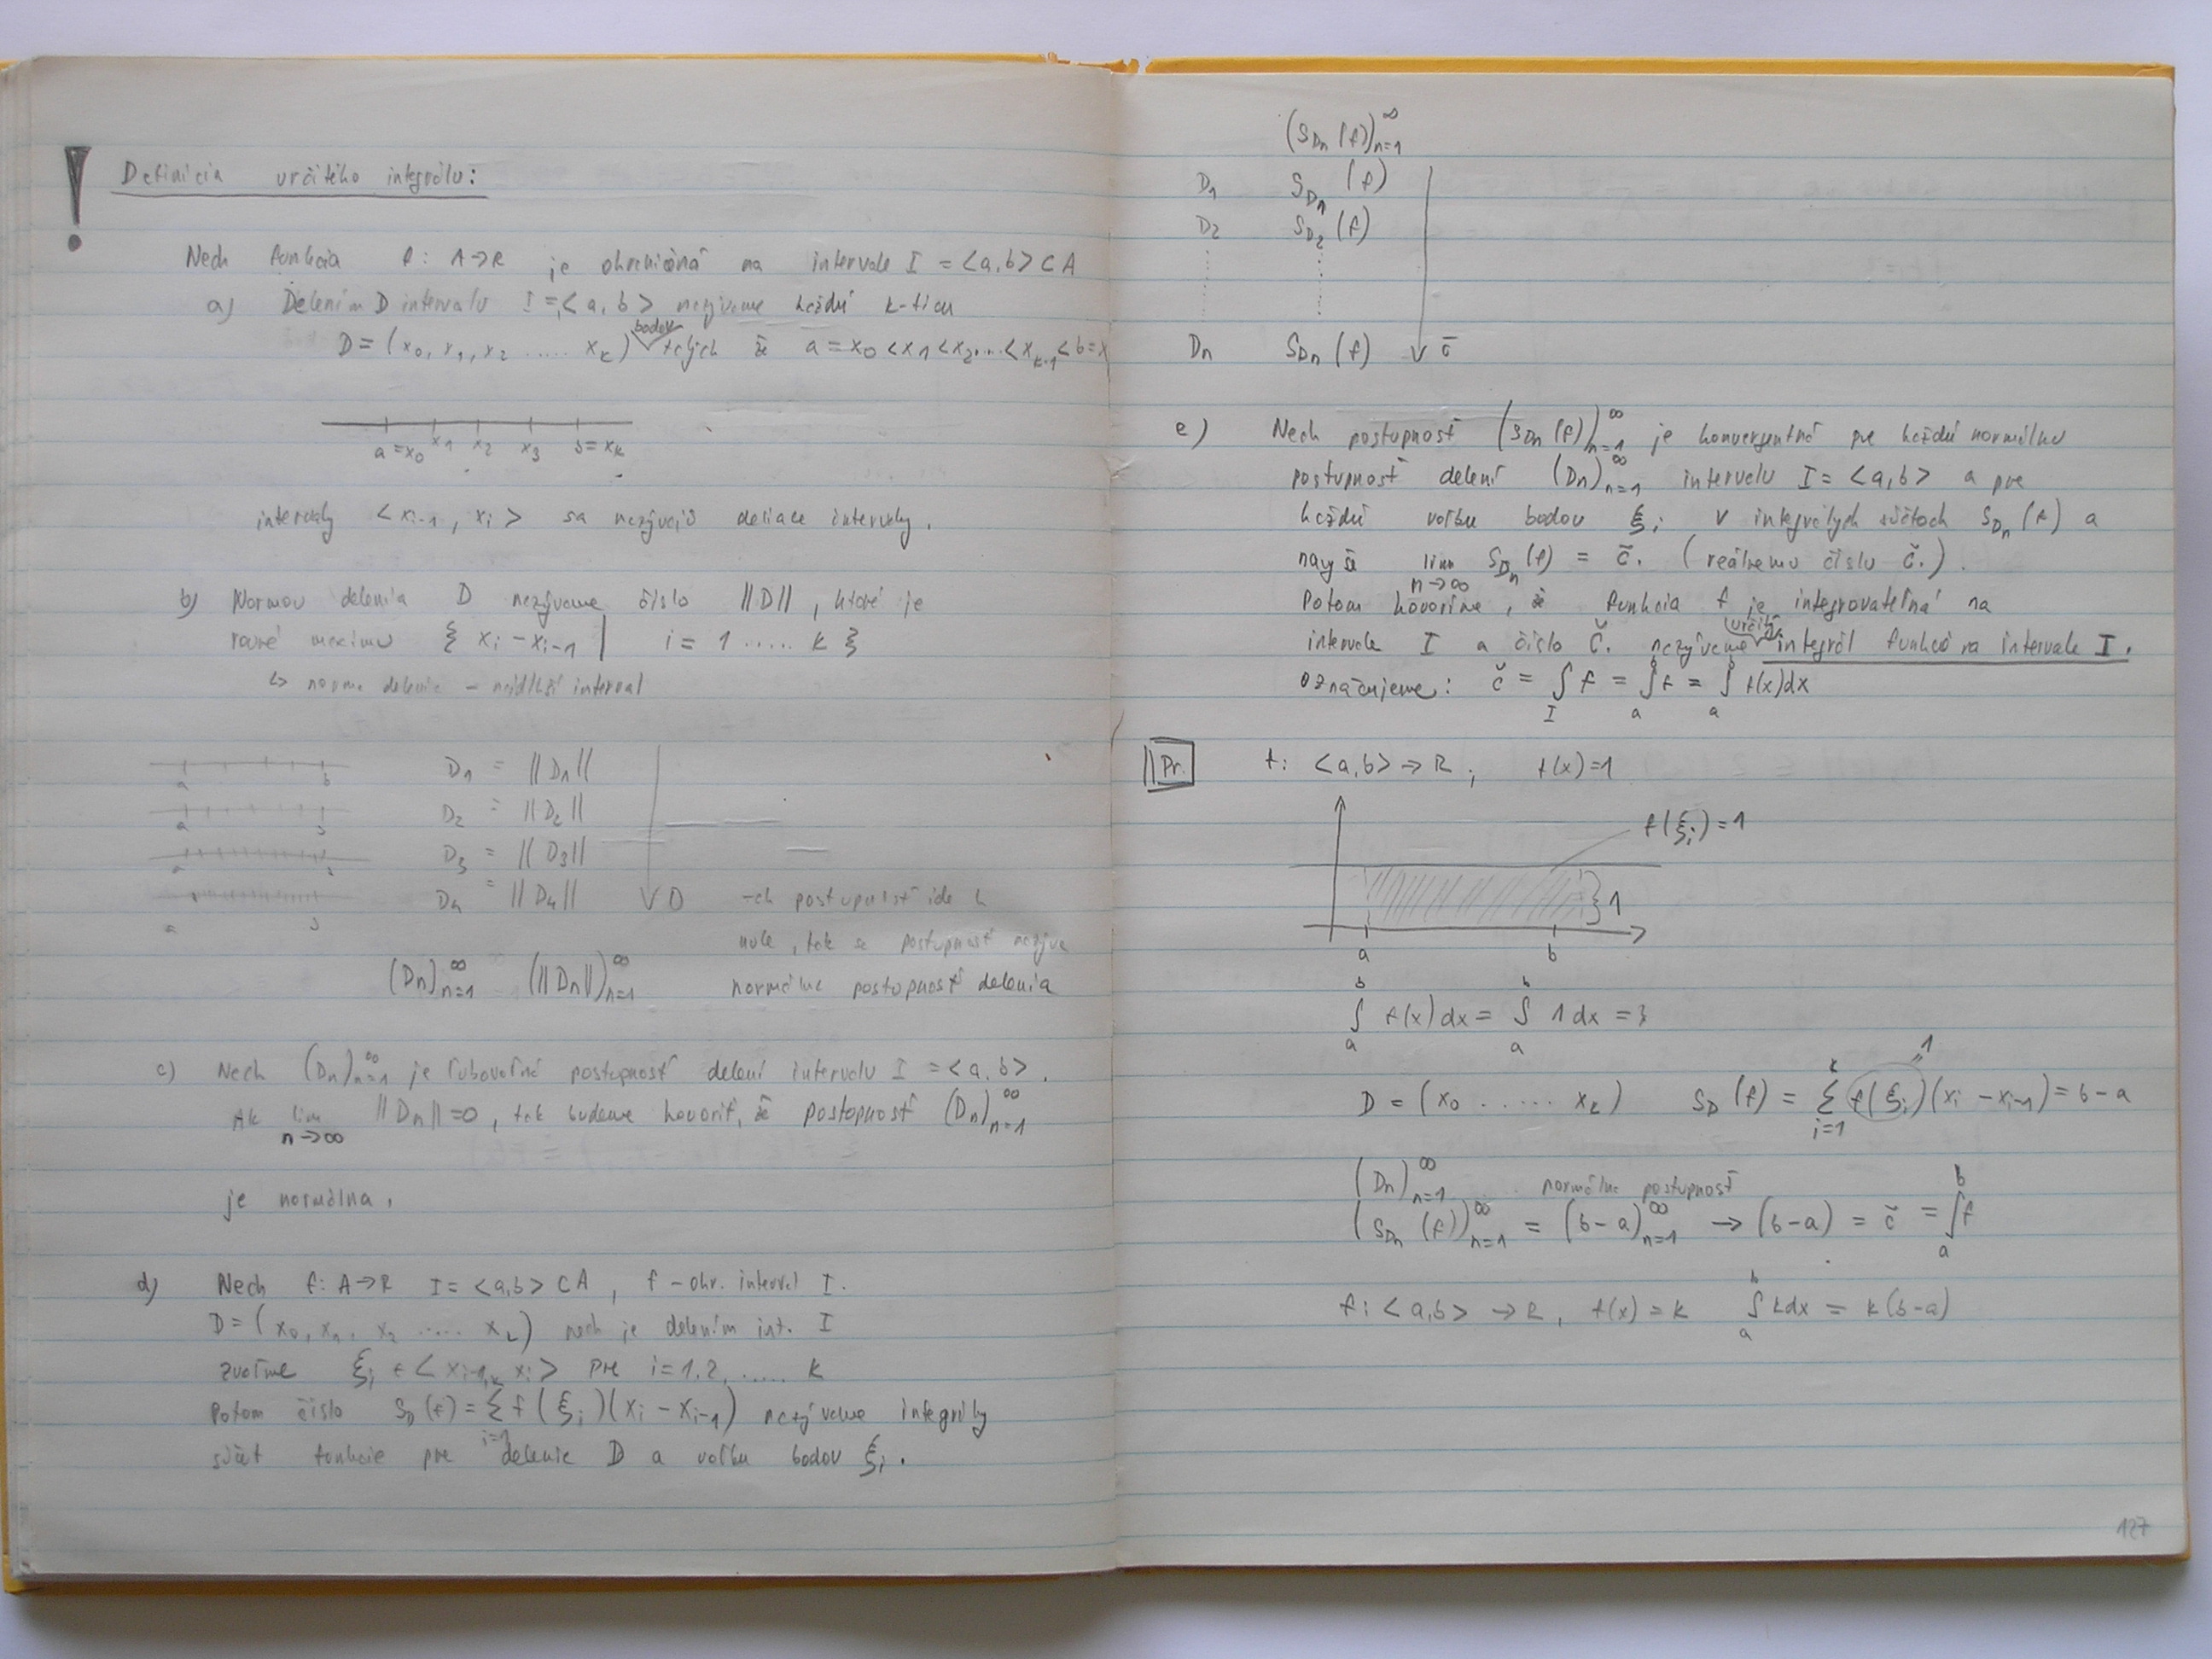 !
Definícia určitého integrálu:
Nech funkcia f: A→R je ohraničená na intervale I = <a,b> ⊂ A
a) Delením D intervalu I = <a,b> nazývame každú k-ticu
bodov
D = (x0, x1, x2 ..... xk) takých že a = x0 < x1 < x2 ... < xk-1 < b = x
a = x0 x1 x2 x3 b = xk
intervaly <xi-1, xi> sa nazývajú deliace intervaly.
b) Normou delenia D nazývame číslo ||D||, ktoré je
rovné maximu { xi - xi-1 | i = 1 ..... k }
↳ norma delenia - najdlhší interval
a b D1 = ||D1||
a b D2 = ||D2||
a b D3 = ||D3||
a b D4 = ||D4|| 0 -ak postupnosť ide k
nule, tak sa postupnosť nazýva
(Dn)∞n=1 (||Dn||)∞n=1 normálna postupnosť delenia
c) Nech (Dn)∞n=1 je ľubovoľná postupnosť delení intervalu I = <a,b>.
Ak lim n→∞ ||Dn|| = 0, tak budeme hovoriť, že postupnosť (Dn)∞n=1
je normálna.
d) Nech f: A→R I = <a,b> ⊂ A, f - ohr. interval I.
D = (x0, x1, x2 ..... xk) nech je delením int. I
zvoľme ξi ∈ <xi-1, xi> pre i = 1,2, ..... k
Potom číslo SD(f) = k∑i=1 f(ξi)(xi - xi-1) nazývame integrálny
súčet funkcie pre delenie D a voľbu bodov ξi.
(SDn(f))∞n=1
D1 SD1(f)
D2 SD2(f)
Dn SDn(f) č
e) Nech postupnosť (SDn(f))∞n=1 je konvergentná pre každú normálnu
postupnosť delení (Dn)∞n=1 intervalu I = <a,b> a pre
každú voľbu bodov ξi v integrálych súčtoch SDn(f) a
navyše lim n→∞ SDn(f) = č. (reálnemu číslu č.).
Potom hovoríme, že funkcia f je integrovateľná na
určitý
intervale I a číslo č. nazývame integrál funkcí na intervale I.
označujeme: č = ∫I f = ∫ba f = ∫ba f(x)dx
Pr. f: <a,b> → R; f(x) = 1
f(ξi) = 1
1
a b
∫ba f(x)dx = ∫ba 1dx = ?
1
D = (x0 ..... xk) SD(f) = k∑i=1 f(ξi)(xi - xi-1) = b - a
(Dn)∞n=1 .. normálna postupnosť
(SDn(f))∞n=1 = (b-a)∞n=1 → (b-a) = č = ∫ba f
f: <a,b> → R, f(x) = k ∫ba kdx = k(b-a)
127